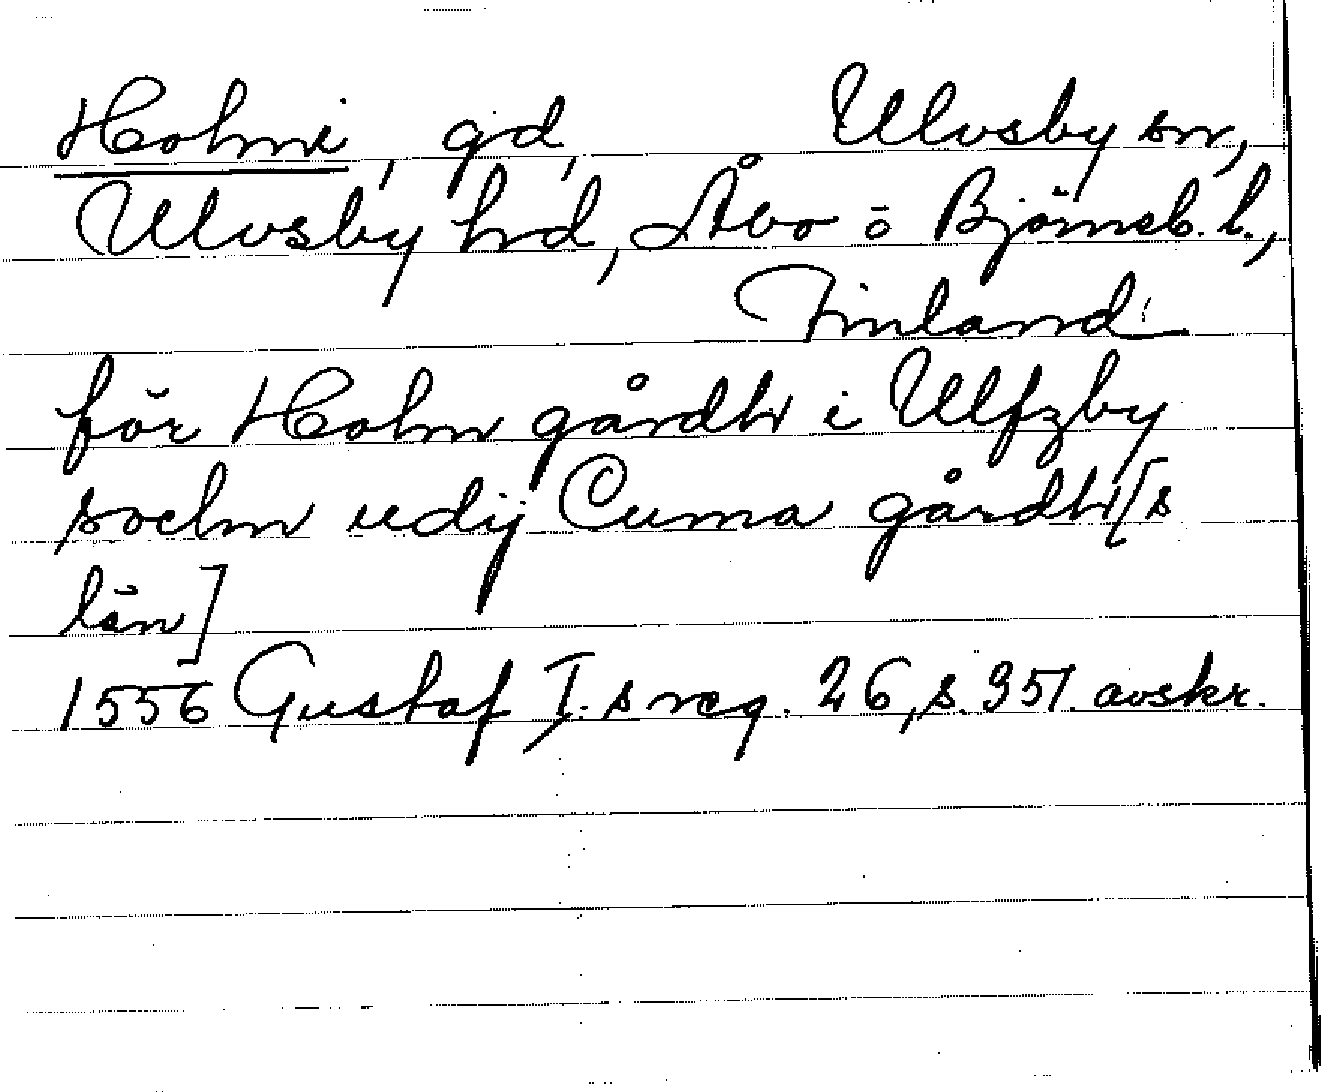 Holmi, gd, Ulvsby sn,
Ulvsby hrd, Åbo o Björneb. l.,
Finland
för Holm gårdh i Ulfzby
sochn udij Cuma gårdh[s
län]
1556 Gustaf I:s reg. 26, s. 351. avskr.